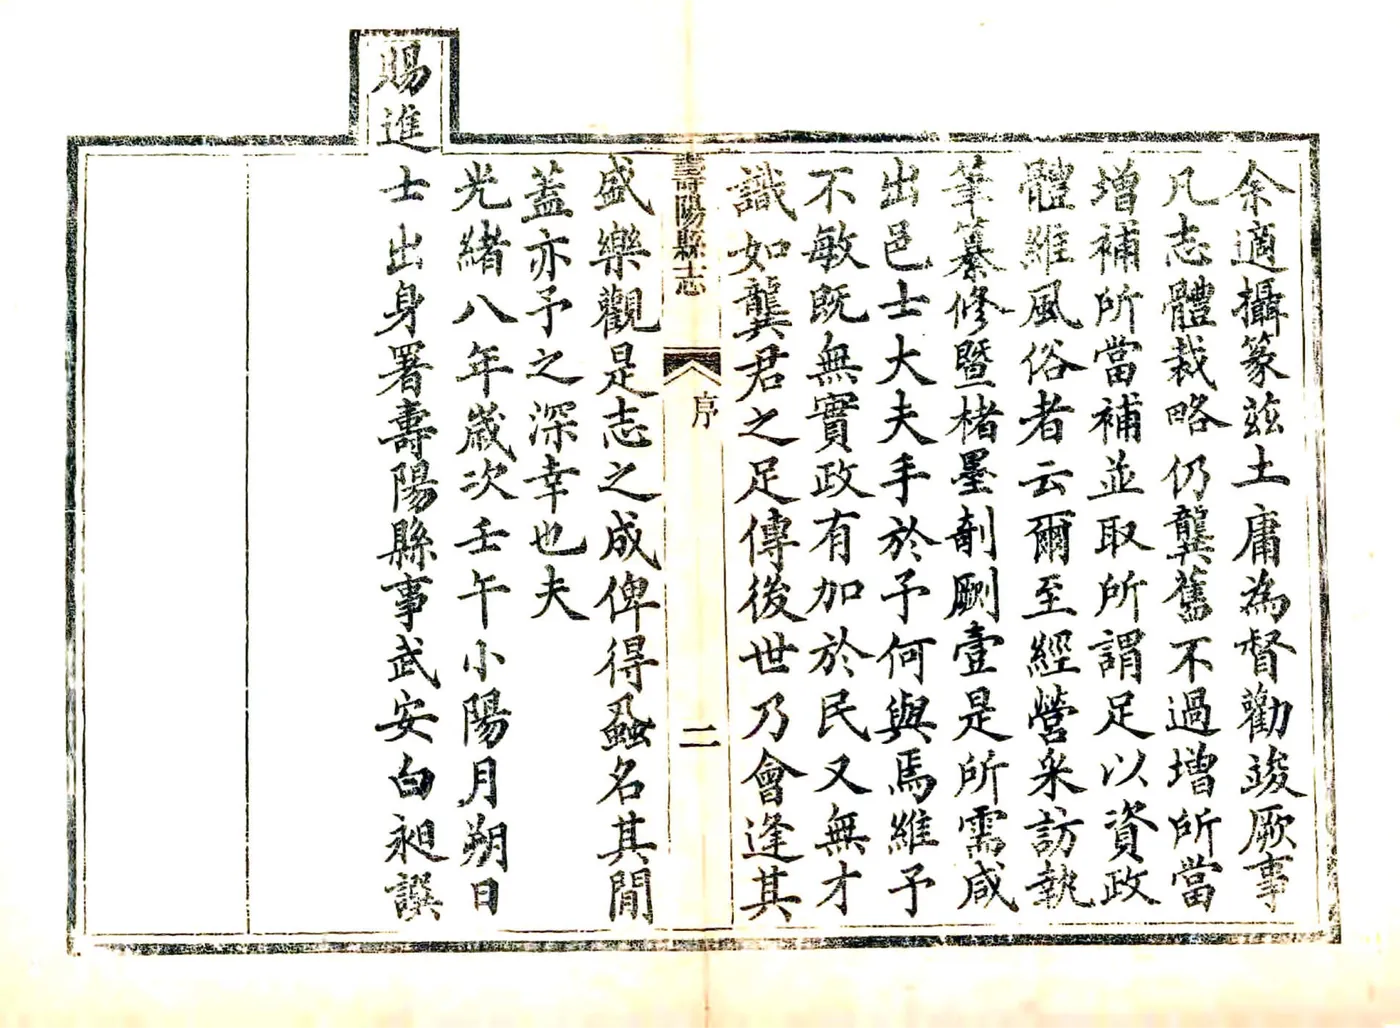 余適攝篆兹土庸為督勸竣厥事
凡志體裁略仍龔舊不過增所當
增補所當補並取所謂足以資政
體維風俗者云爾至經營采訪執
筆纂修暨楮墨剞劂壹是所需咸
出邑士大夫手於予何與焉維予
不敏既無實政有加於民又無才
識如龔君之足傳後世乃會逢其
壽陽縣志
序
二
盛樂觀是志之成俾得蝨名其間
蓋亦予之深幸也夫
光緒八年歲次壬午小陽月朔日
賜進士出身署壽陽縣事武安白昶譔